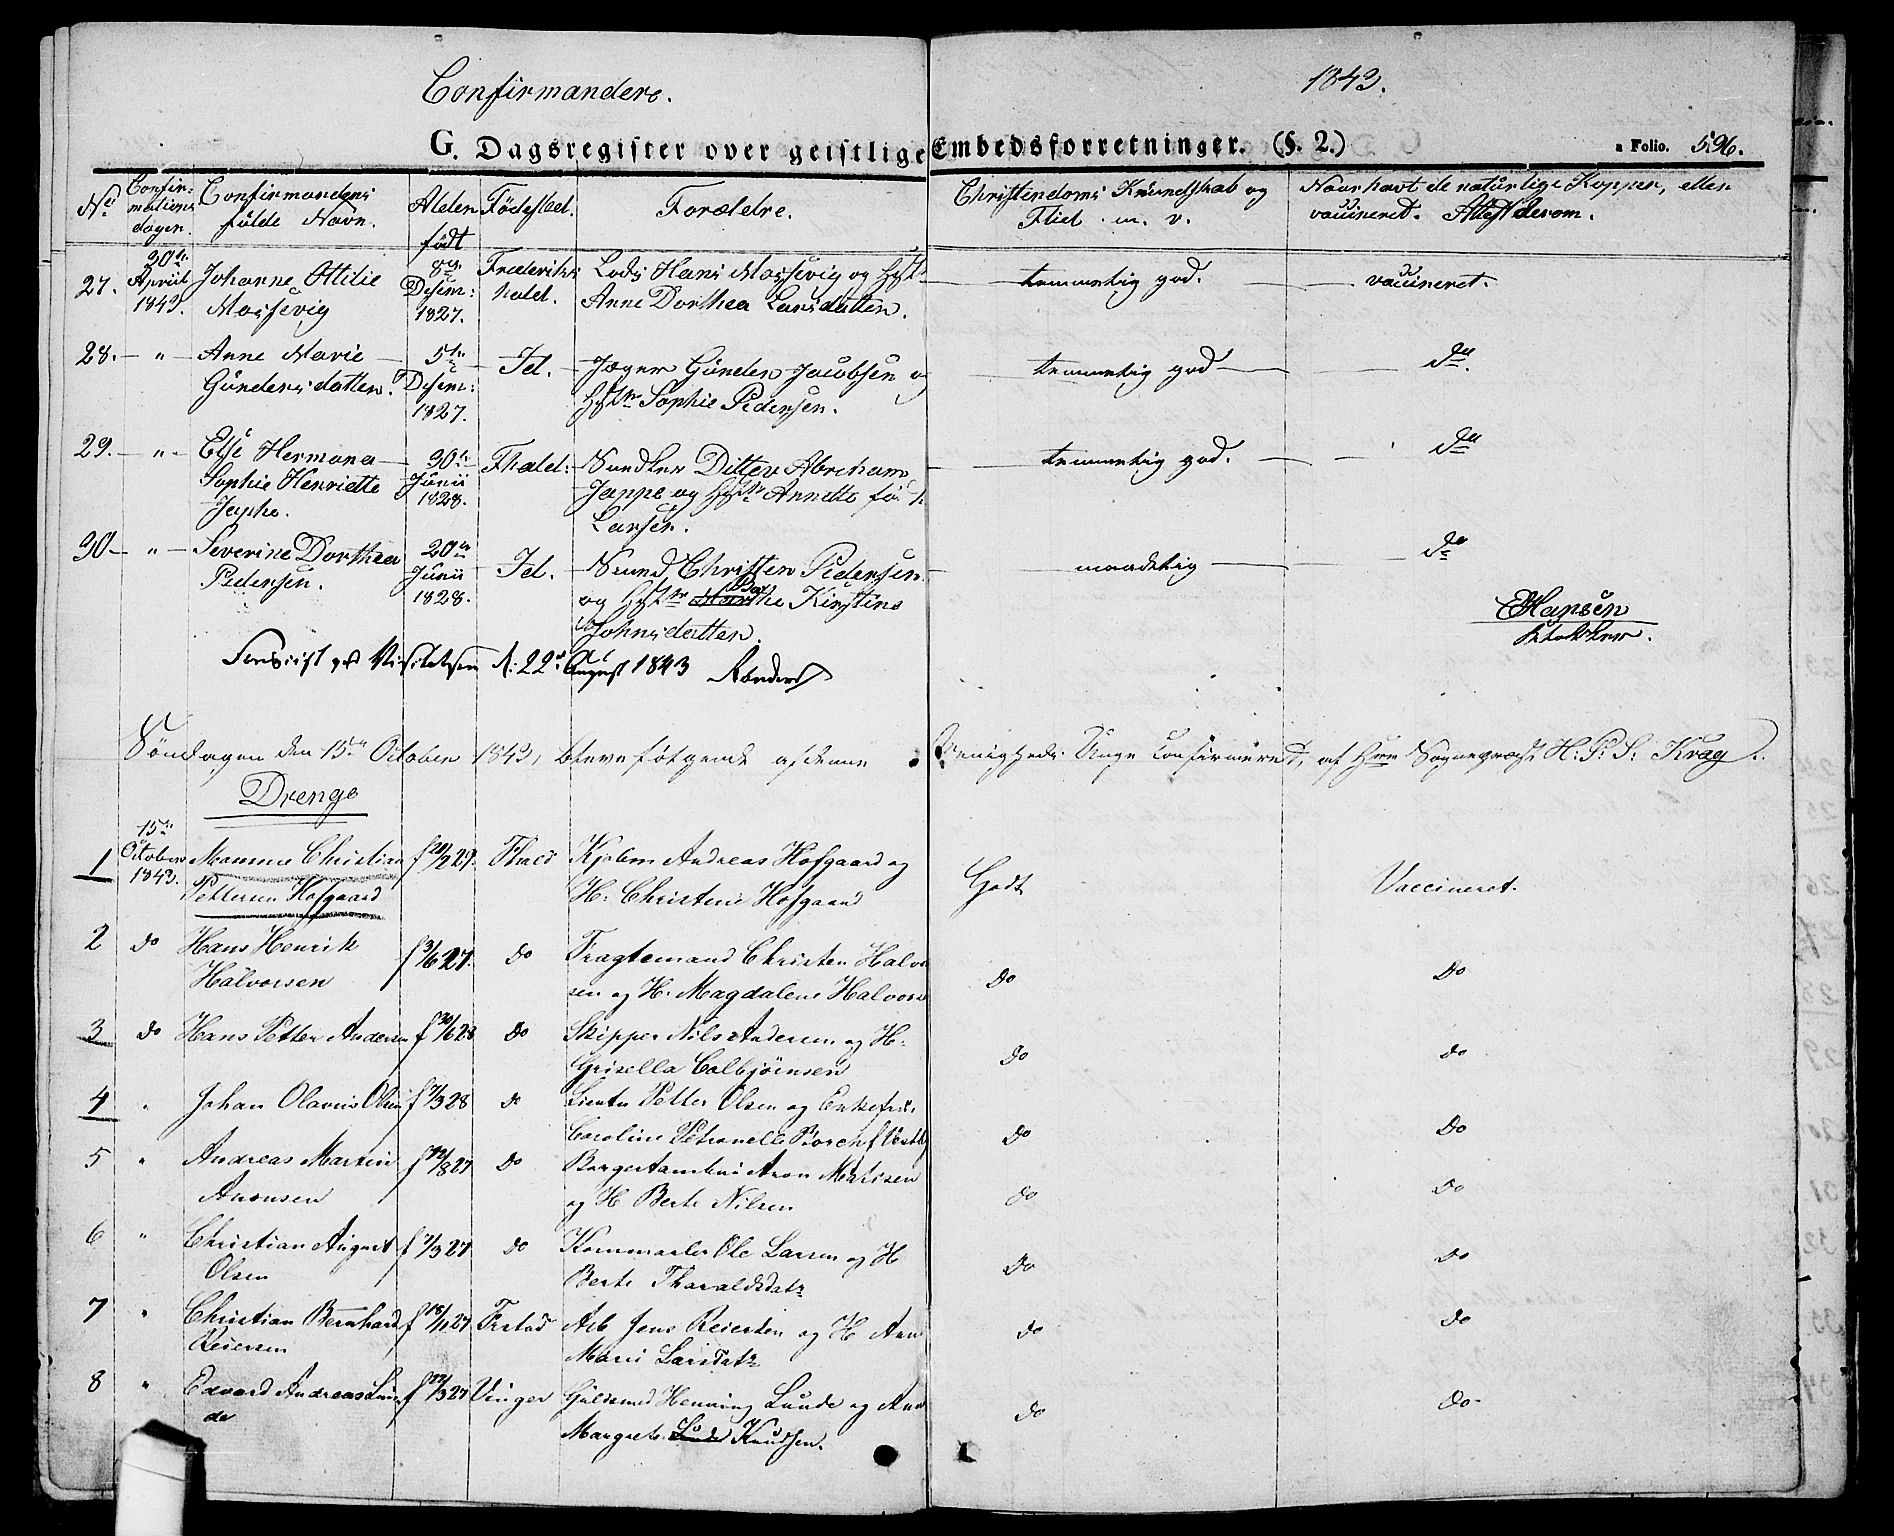 Confirmandere.
1843.
G. Dagsregister over geistlige Embedsforretninger. (§. 2.)
a Folio. 596.
No
Confir-
mations
dagen.
Confirmandens
fulde Navn.
Alder
født
Fødested.
Forældre.
Christendoms Kundskab og
Fliet m. v.
Naar havt de naturlige Kopper, eller
vaccineret. Attest derom.
27.
30te
April
1843.
Johanne Ottilie
Massevig
8de
Desem:
1827.
Frederiks
hald.
Lods Hans Massevig og Hst
Anne Dorthea Larsdatter.
temmelig god.
vaccineret.
28. — " —
Anne Marie
Gundersdatter.
5te
Desem:
1827.
Id.
Jæger Gunder Jacobsen og
Hstr Sophie Pedersen.
temmelig god
do.
29. — " —
Else Hermana
Sophie Henriette
Jephe.
30te
Junii
1828.
Fhald:
Snedker Ditlev Abraham
Jeppe og Hstr Annette
Larsen.
temmelig god.
do
30 — " —
Severine Dorthea
Pedersen.
20de
Junii
1828.
Id.
Christen Pedersen
og Hstr Marthe Kirstine
Johnsdatter.
maadelig
do
EHansen
Klokker.
Visitatsen d: 22de August 1843
Søndagen den 15de October 1843, bleve følgende af denne Menigheds Unge Confirmeret, af Herr Sognepræst H. P. S. Krag.
Drenge
1
15de
October
1843.
Christian
Pettersen Hofgaard
f 20/2 29.
Fhald
Kjøbm Andreas Hofgaard og
H. Christine Hofgaard
Godt
Vaccineret.
2
do
Hans Henrik
Halvorsen
f 3/6 27.
do
Fragtemand Christen Halvor
sen og H. Magdalene Halvorsen
do
do
3
do
Hans Petter Andersen
f 30/6 28
do
Skipper Nils Andersen og H.
Grisella Colbjørnsen
do
do
4
"
Johan Olavus Olsen
f 7/3 28
do
Petter Olsen og Enkefru
Caroline Petronelle Borch
do
do
5
"
Andreas Martin
Aronsen
f 12/8 27
do
Aron Matisen
og H Berte Nilsen
do
do
6
"
Christian August
Olsen
f 7/3 27
do
Ole Larsen og H
Berte Tharaldsdatr
do
do
7
"
Christian Bernhard
Reiersen
f 18/11 27
Frstad
Arb Jens Reiersen og H Ane
Marie Larsdatr
do
do
8
"
Edvard Andreas Lun
de
f 22/3 27
Vinger
Guldsmed Henning Lunde og Ane
Margrete Lunde Knudsen.
do
do